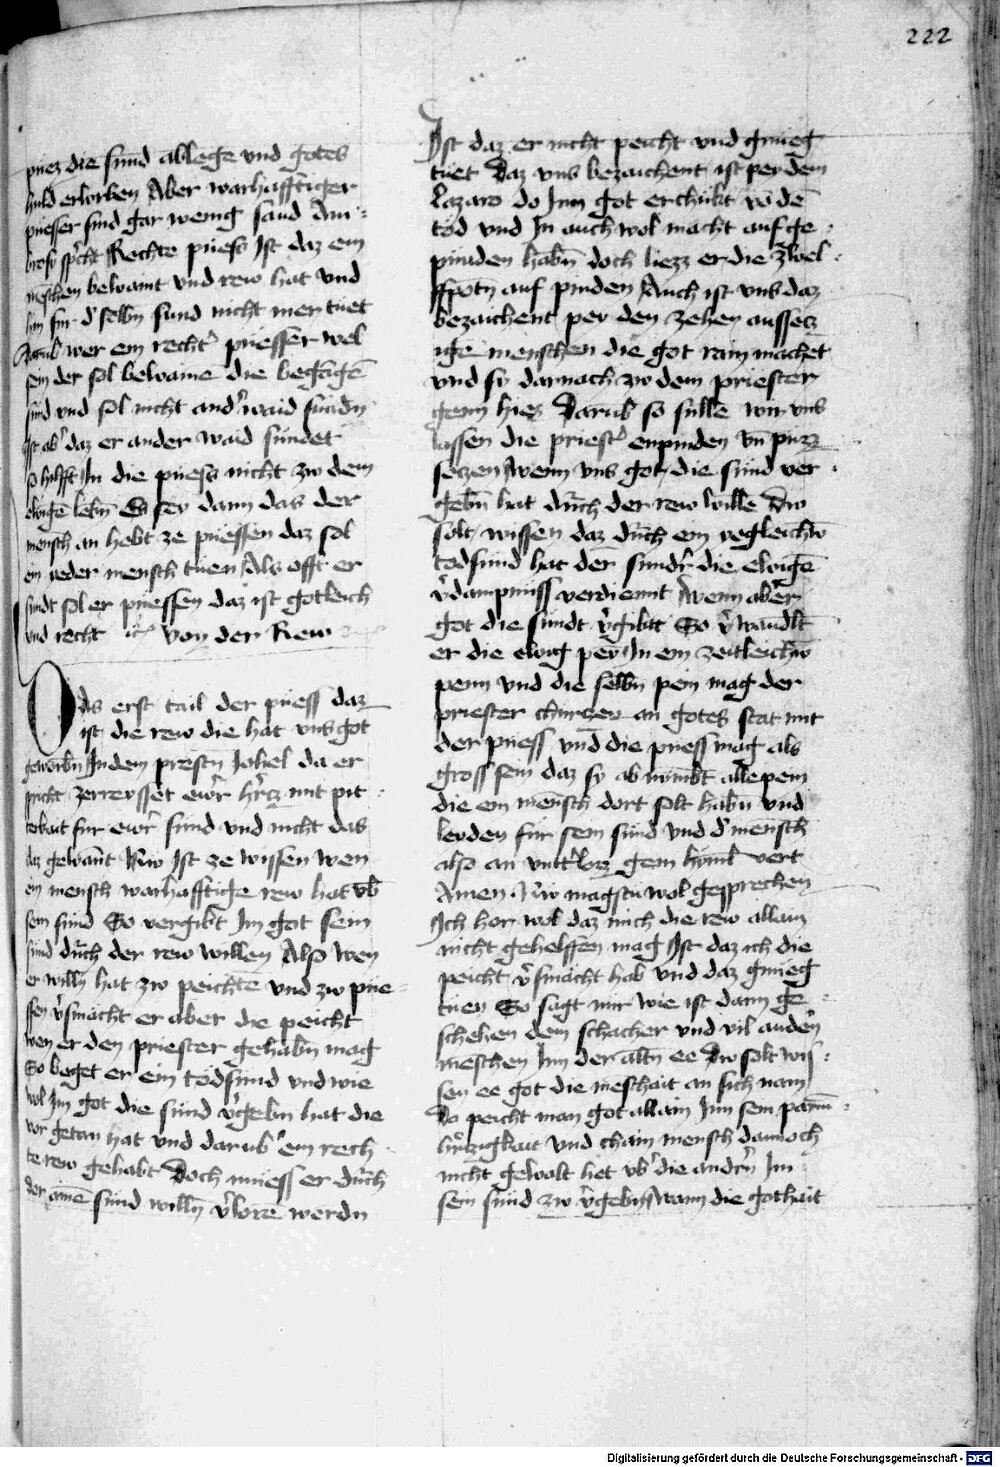 222
puez die sund ablege vnd gotes
huld erwrben Aber warhafftiger
puesser sind gar wenig sand Am=
brosy spͥcht Rechte puess Ist daz ein
meschen bekant vnd rew hat vnd
hin fur dʼ selbn sund nicht mer tuet
Darub wer ein rechtʼ puesser wel
sein der sol bekaine die begāgē
sund vnd sol nicht andʼ waid sundn̄
Ist abʼ daz er ander waid sundet
so hilfft In die puess nicht zw dem
ewigē lebn̄ Es sey dann das der
mensch an hebt ze puessen daz sol
ein yeder mensch tuen Als offt er
sundt sol er puessen daz ist gotleich
vnd recht von der Rew
Das erst tail der puess daz
ist die rew die hat vns got
geworbn̄ In dem prestn̄ Johel da er
spricht zerreysset ewrʼ hʼcz mit pit=
terkait fur ewrʼ sund vnd nicht das
daz gewant Nw Ist ze wissen wen
ein mensch warhafftige rew hat vb̄
sein sund So vergibt Im got sein
sund durch der rew willen Also wen
er willn̄ hat zw peichtē vnd zw pue=
ssen vʼsmacht er aber die peicht
wen er den priester gehabn̄ mag
So beget er ein todsund vnd wie
wol Im got die sund vʼgebn̄ hat die
vor getan hat vnd darub ein rech
te rew gehabt Doch muess er durch
der ainē sund willn̄ vʼlorē werdn̄
Ist daz er nicht peicht vnd gnueg
tuet Daz vns bezaichent ist pey dem
Lazaro do Inn got erchukt vō dē
tod vnd In auch wol macht aufge=
punden habn̄ doch liezz er die zwel=
fpotn̄ auf pinden Auch ist vns daz
bezaichent pey den zehen aussecz
igē menschen die got rain machet
vnd sy darnach zw dem priester
genn hiez Darub so sulle wir vns
lassen die priestʼ enpinden vn̄ puzz
seczen Wenn vns got die sund ver=
gebn̄ hat durch der rew wille Dw
solt wissen daz durch ein yegleichw
todsund hat der sundʼ die ewigē
vʼdampnuss verdiennt Wenn aber
got die sundt vʼgibtt So vʼwandlt
er die ewig pey In ein zeitleichew
penn vnd die selbn̄ pein mag der
priester churczen an gotes stat mit
der puess vnd die puess mag als
gross sein daz sy ab nymbt alle pein
die ein mensch dort solt habn̄ vnd
leyden fur sein sund vnd dʼ mensch
also an vnttʼlozz genn himl vert
Amen Nw magstu wol gesprechen
Ich hor wol daz mich die rew allain
nicht gehelffen mag Ist daz ich die
peicht vʼsmacht hab vnd daz gnueg
tuen So sagt mir wie ist dann ge=
schehen dem schacher vnd vil andern̄
meschen Inn der altn̄ ee Dw solt wis=
sen ee got die meschait an sich nam
Do peicht man got allain Inn sein parm=
hʼczigkait vnd chain mensch dannoch
nicht gewalt het vbʼ die andrn̄ Im
sein sund zw vʼgebn̄ Wann die gothait
Digitalisierung gefördert durch die Deutsche Forschungsgemeinschaft - DFG